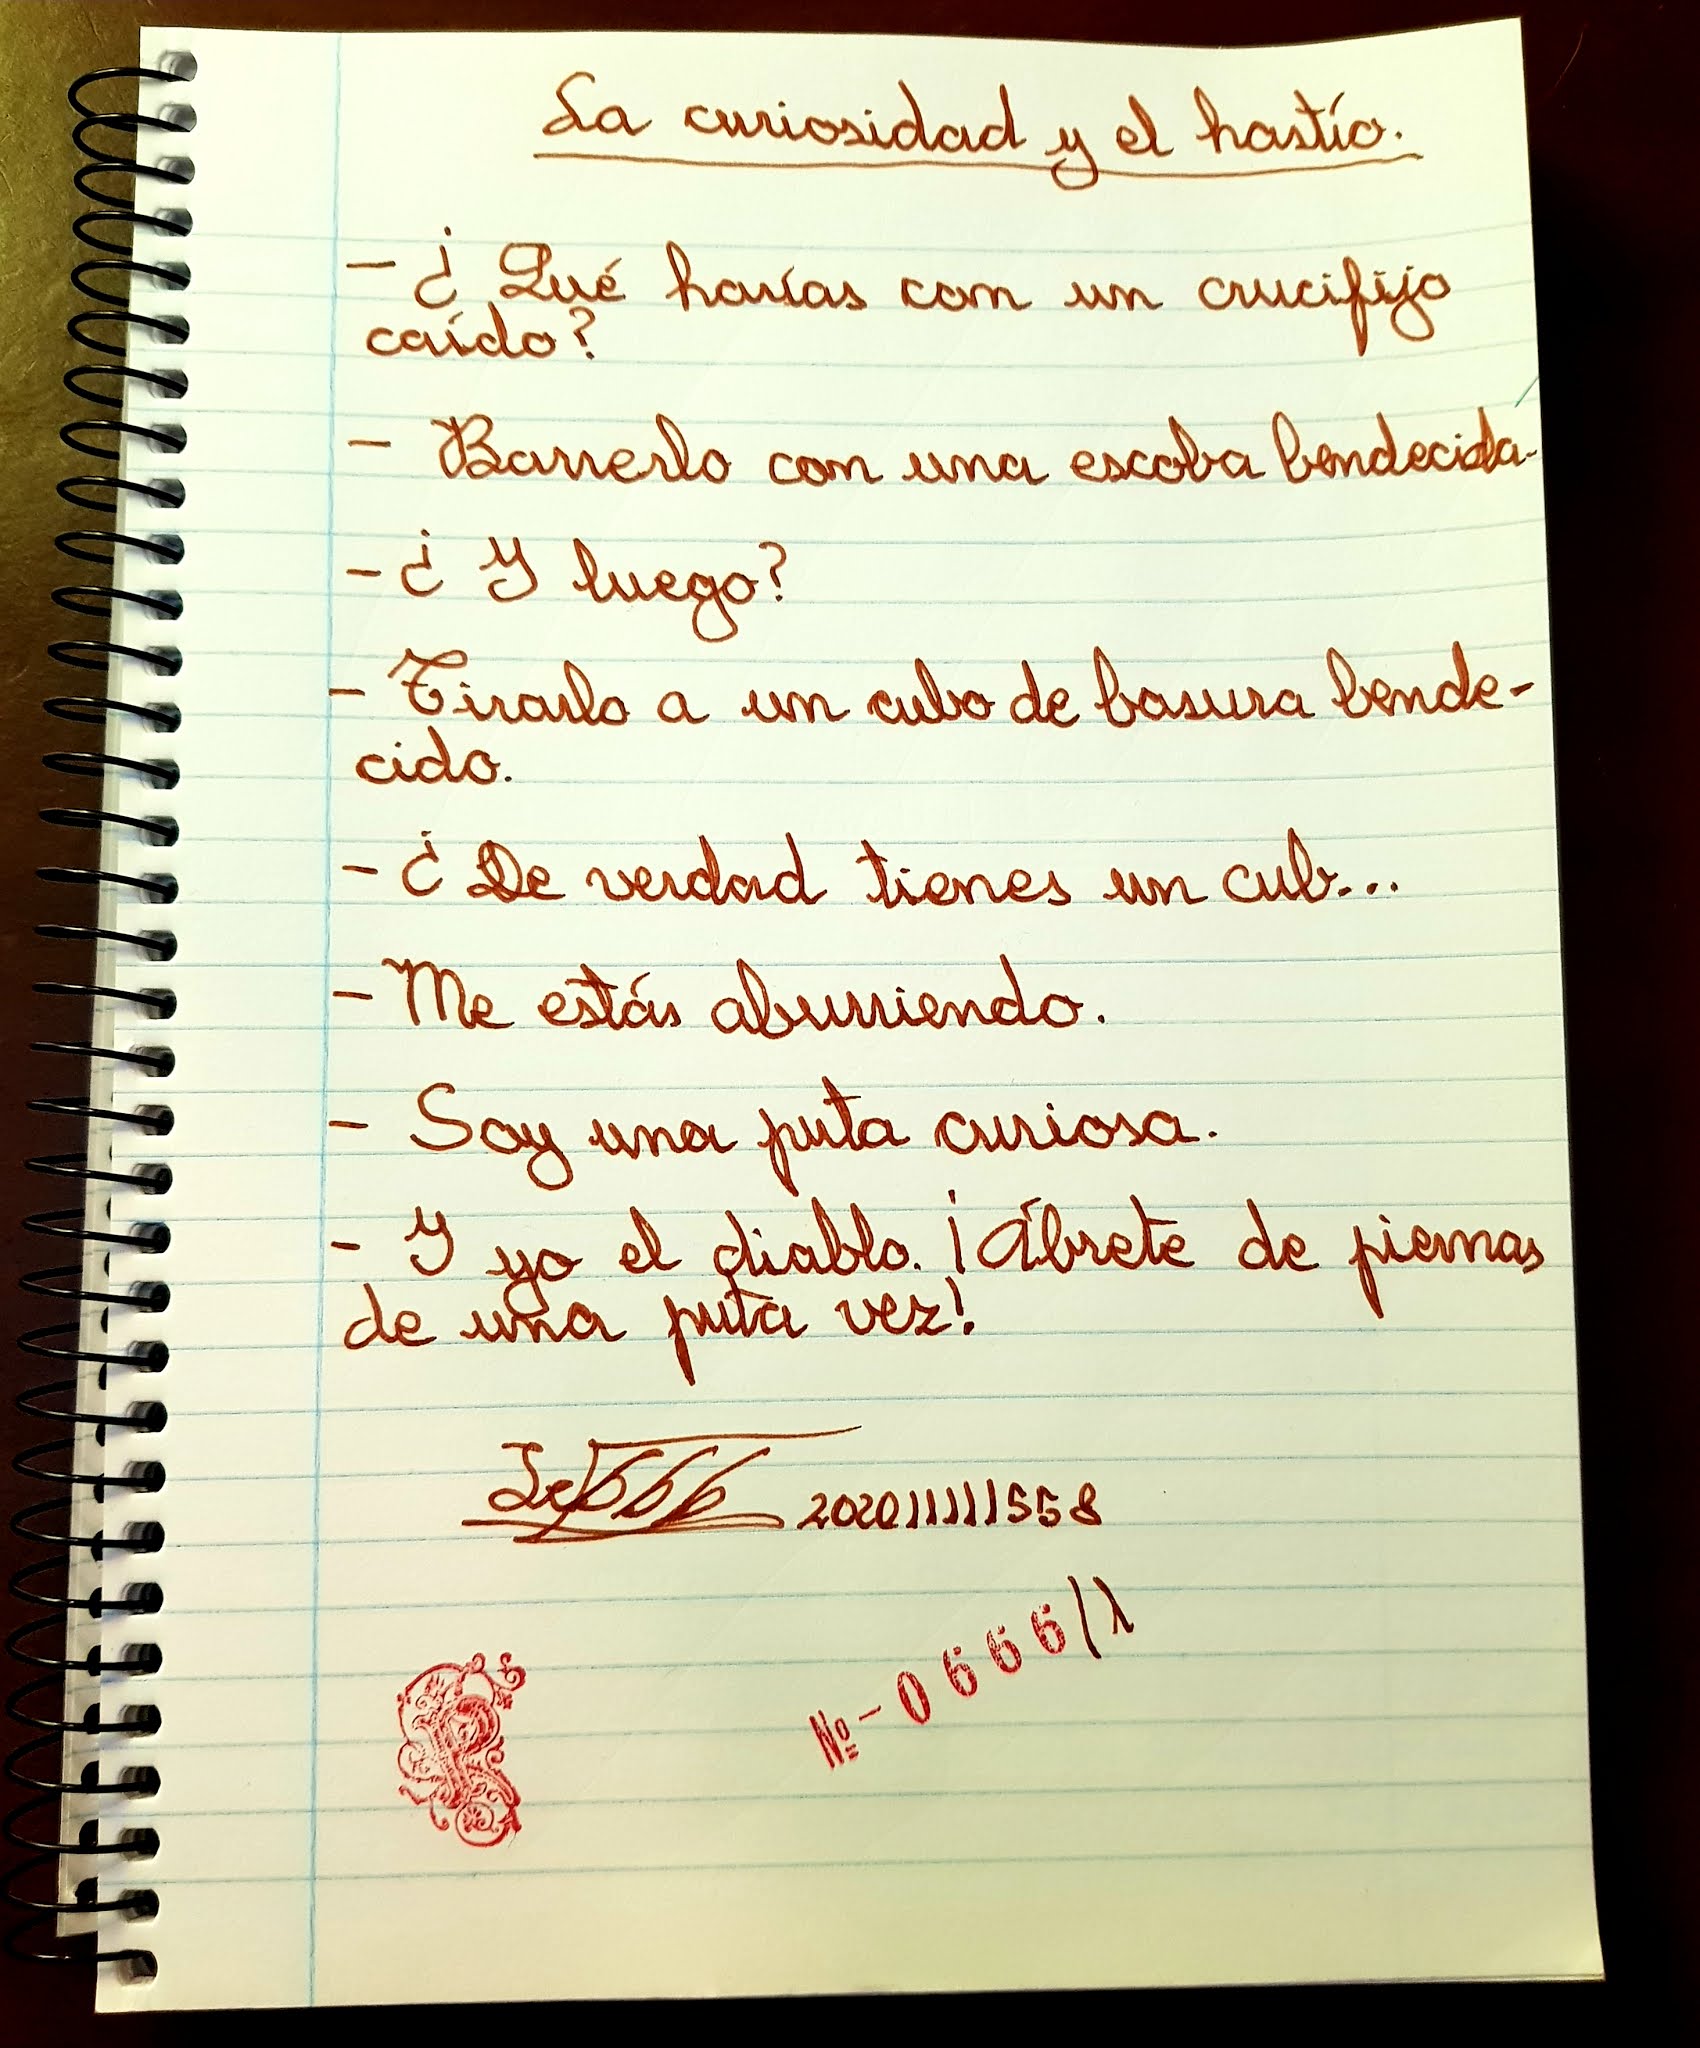 La curiosidad y el hastío.
- ¿Qué harías con un crucifijo
caído?
- Barrerlo con una escoba bendecida.
- ¿Y luego?
- Tirarlo a un cubo de basura bende-
cido.
- ¿De verdad tienes un cub...
- Me estás aburriendo.
- Soy una puta curiosa.
- Y yo el diablo. ¡Ábrete de piernas
de una puta vez!
666 202011111558
Nº-0666/λ